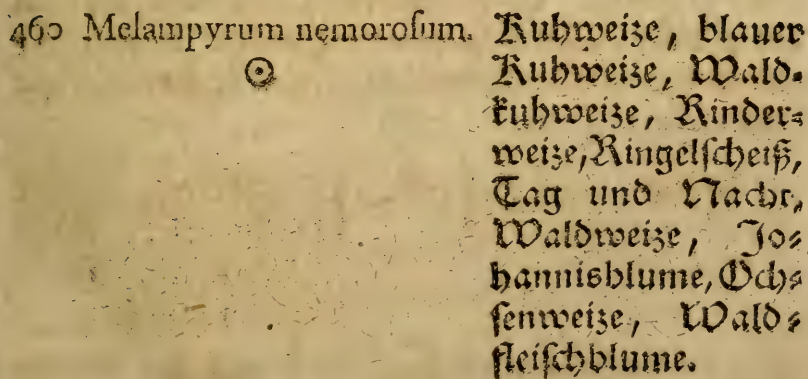 460 Melampyrum nemoroſum. Kuhweize, blauer
☉ Kuhweize, Wald-
kuhweize, Rinder-
weize, Ringelſcheiß,
Tag und Nacht,
Waldweize, Jo-
hannisblume, Och-
ſenweize, Wald-
fleiſchblume.